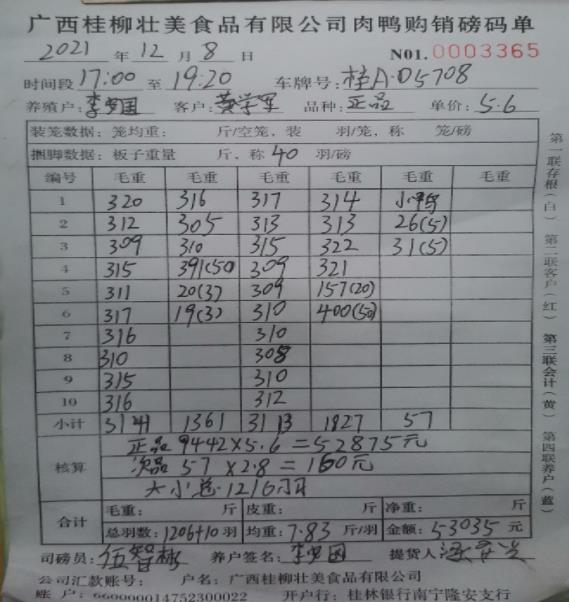 广西桂柳壮美食品有限公司肉鸭购销磅码单
2021 年 12 月 8 日 N01.0003365
时间段 17:00 至 19:20 车牌号: 桂A·D5708
养殖户: 客户: 黄学军 品种: 正品 单价: 5.6
装笼数据: 笼均重: 斤/空笼, 装 羽/笼, 称 笼/磅
捆脚数据: 板子重量 斤, 称 40 羽/磅
编号 毛重 毛重 毛重 毛重 毛重 毛重
1 320 316 317 314 小鸭
2 312 305 313 313 26(5)
3 309 310 315 322 31(5)
4 315 391(50 309 321
5 311 20(3) 309 157(20)
6 317 19(3) 310 400(50)
7 316 310
8 310 308
9 315 310
10 316 312
小计 3141 1361 3113 1827 57
核算
正品 9442×5.6=52875元
次品 57×2.8=160元
大小总1216羽
合计
毛重: 斤 皮重: 斤 净重: 斤
总羽数: 1206+10 羽 均重: 7.83 斤/羽 金额: 53035 元
司磅员: 伍智彬 养户签名: 提货人:
公司汇款账号: 户名: 广西桂柳壮美食品有限公司
账户: 660000014752300022 开户行: 桂林银行南宁隆安支行
第一联存根(白) 第二联客户(红) 第三联会计(黄) 第四联养户(蓝)